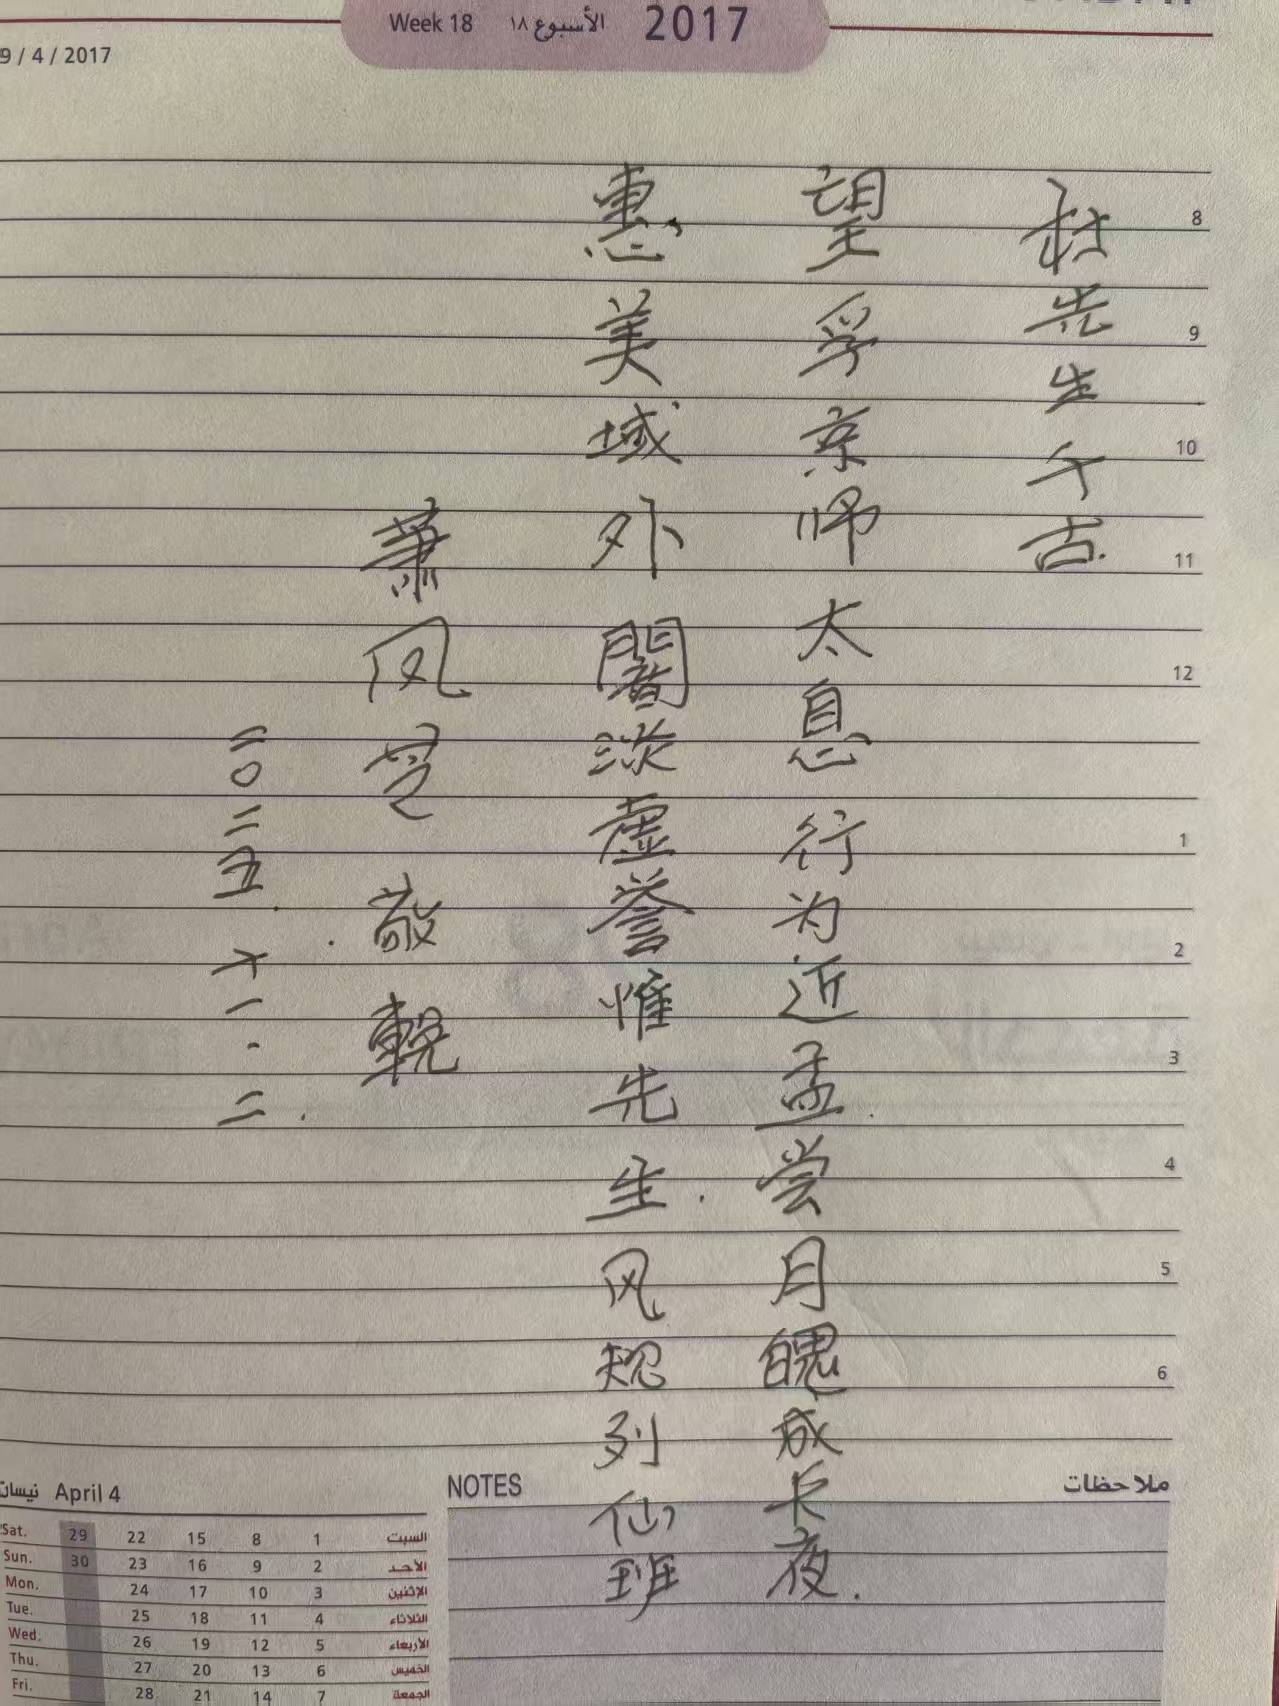 Week 18 الأسبوع ١٨ 2017
9 / 4 / 2017
杜先生千古
望孚京师太息行为近孟尝月魄成卡夜
惠美域外闇淡虚誉惟先生风规列仙班
萧风 敬輓
二〇二五.十一.二.
8
9
10
11
12
1
2
3
4
5
6
نيسان April 4
Sat. 29 22 15 8 1 السبت
Sun. 30 23 16 9 2 الأحد
Mon. 24 17 10 3 الإثنين
Tue. 25 18 11 4 الثلاثاء
Wed. 26 19 12 5 الأربعاء
Thu. 27 20 13 6 الخميس
Fri. 28 21 14 7 الجمعة
NOTES ملاحظات